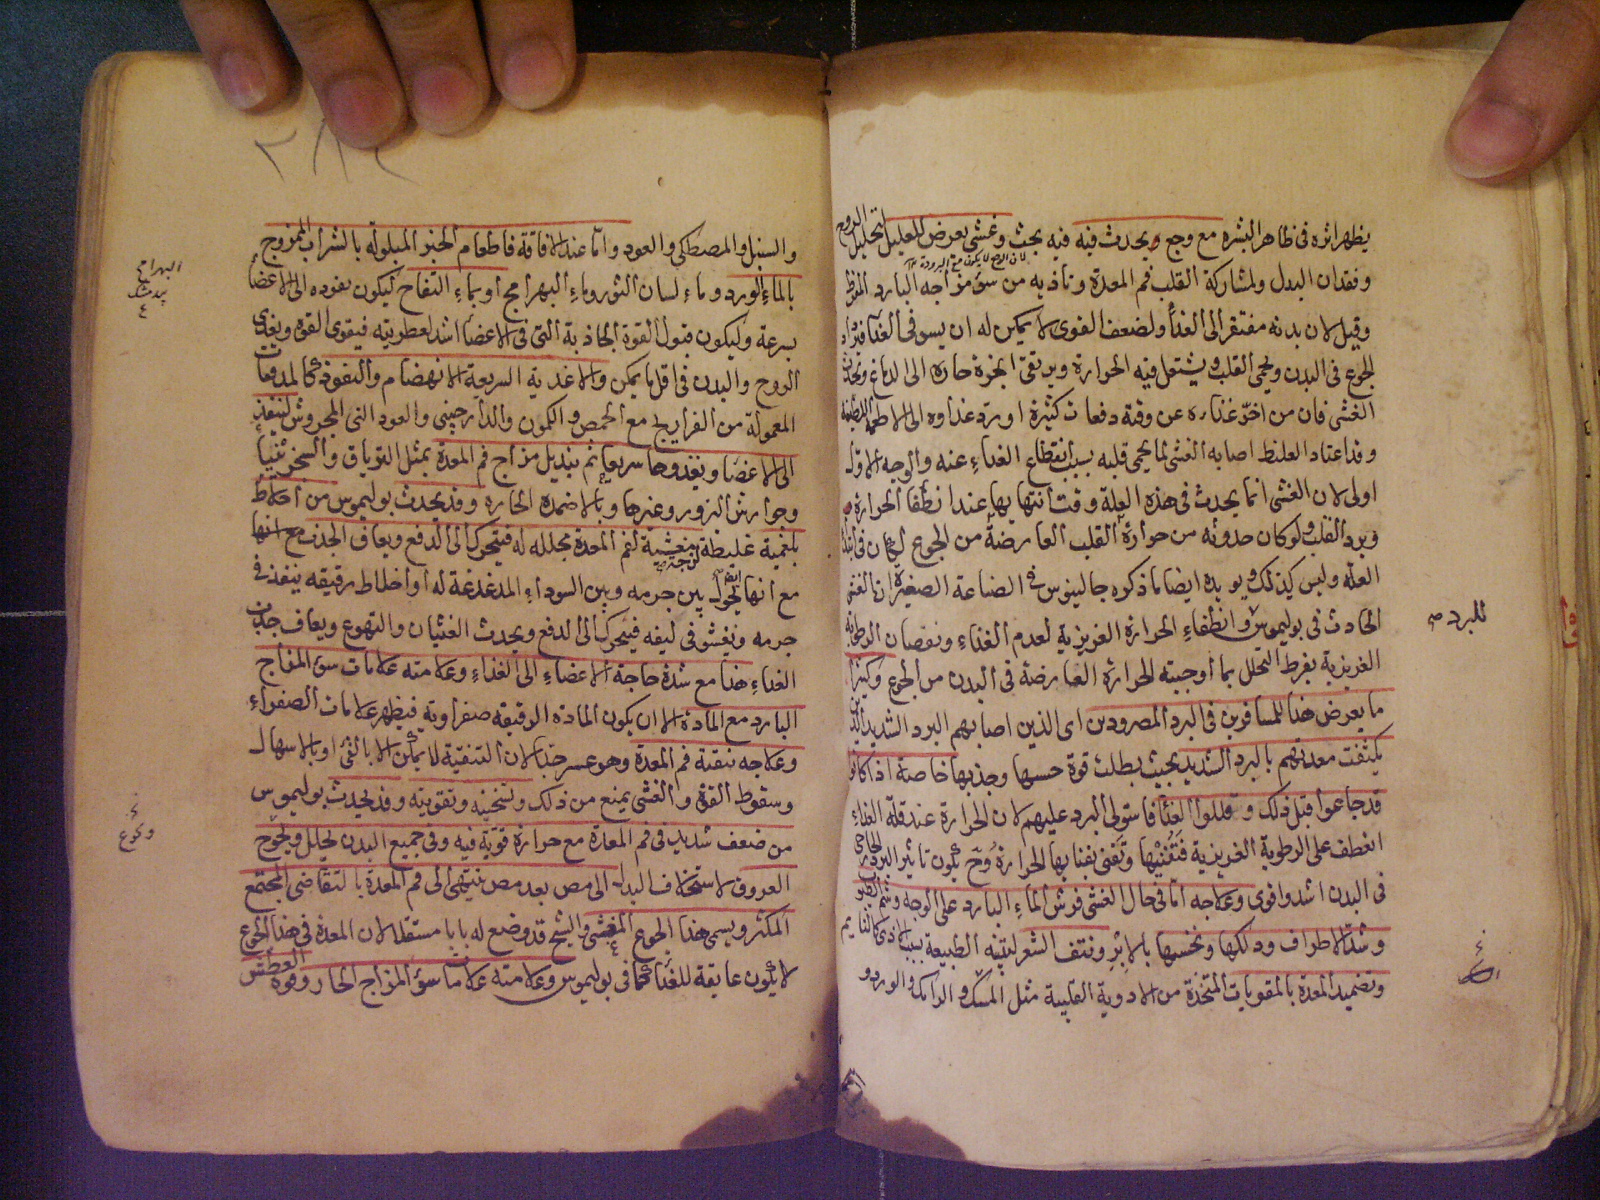 يظهر اثره فى ظاهر البشره مع وجع ويحدث فيه فيه بحث وغشى يعرض للعليل لتحليل الروح
لان الروح لا يكون مع البرودة
وفقدان البدل ولمشاركة القلب فم المعدة وتاذيه من سوء مزاجه البارد المفرط
وقيل لان بدنه مفتقر الى الغذاء ولضعف القوى لا يمكن له ان يستوفى الغذاء فيزداد
الجوع فى البدن ويحمى القلب ويشتعل فيه الحرارة ويرتقى ابخرة حارة الى الدماغ ويحدث
الغشى فان من اخر غذاءه عن وقته دفعات كثيرة او ترد غذاوه الى الاطعمة اللطيفة
وقد اعتاد الغليظ اصابه الغشى لما يحمى قلبه بسبب انقطاع الغذاء عنه والوجه الاول
اولى لان الغشى انما يحدث فى هذه العلة وقت انتهايها عند انطفا الحرارة
وبرد القلب ولو كان حدوثه من حرارة القلب العارضة من الجوع لكان فى ابتداء
العلة وليس كذلك ويويده ايضا ما ذكره جالينوس فى الصناعة الصغيرة ان الغشى
الحادث فى بوليموس وانطفاء الحرارة الغريزية لعدم الغذاء ونقصان الرطوبة
للبرد
الغريزية بفرط التحلل بما اوجبته الحرارة العارضة فى البدن من الجوع وكثيرا
ما يعرض هذا للمسافرين فى البرد المصرودين اى الذين اصابهم البرد الشديد الذين
يكثفت معدتهم بالبرد الشديد بحيث بطلت قوة حسها وجذبها خاصة اذا كانوا
قد جاعوا قبل ذلك وقللوا الغذاء فاستولى البرد عليهم لان الحرارة عند قلة الغذاء
انعطف على الرطوبة الغريزية فتفنيها وتفنى بفنايها الحرارة وح يكون تاثير البرد الخارجى
فى البدن اشد واقوى وعلاجه اما فى حال الغشى فرش الماء البارد على الوجه وشم الطيوب
وشد الاطراف ودلكها ونخسها بالابر ونتف الشعر ليتنبه الطبيعة بسبب الاذى كالنايم
وتضميد المعدة بالمقويات المتخذة من الادوية القلبية مثل المسك والرامك والورد و
والسنبل والمصطكى والعود واما عند الافاقة فاطعام الخبز المبلولة بالشراب الممزوج
بالماء الورد وماء لسان الثور وماء البهرامج او بماء التفاح ليكون نفوذه الى الاعضا
البهرامج
بيدمشك
بسرعة وليكون قبول القوة الجاذبة التى فى الاعضا اشد لعطريته فيقوى القوة ويغذى
الروح والبدن فى اقل ما يمكن والاغذية السريعة الانهضام والنفوذ كالمدقات
المعمولة من الفراريج مع الحمص والكمون والدارجينى والعود النى المجروش لينفذ
الى الاعضا ويغذوها سريعا ثم بتبديل مزاج فم المعدة بمثل الترياق والسجزنيا
وجوارش البزور وغيرها وبالاضمدة الحارة وقد يحدث بوليموس من اخلاط
بلغمية غليظة لزجة مغشية لفم المعدة مجللة له فيتحرك الى الدفع ويعاف الجذب مع انها
مع انها ايضا تحول بين جرمه وبين السوداء المدغدغة له او اخلاط رقيقة ينفذ فى
جرمه وتغشو فى ليفه فيتحرك الى الدفع ويحدث الغثيان والتهوع ويعاف جذب
الغذاء هذا مع شدة حاجة الاعضاء الى الغذاء وعلامته علامات سوء المزاج
البارد مع المادة الا ان يكون المادة الرقيقة صفراوية فيظهر علامات الصفراء
وعلاجه تنقية فم المعدة وهو عسر جدا لان التنقية لا يمكن الا بالقى او بالاسهال
وسقوط القوة والغشى يمنع من ذلك وتسخينه وتقويته وقد يحدث بوليموس
من ضعف شديد فى فم المعدة مع حرارة قوية فيه وفى جميع البدن يحلل ويحوج
ويجوع
العروق لاستخلاف البدل الى مص بعد مص ينتهى الى فم المعدة بالتقاضى المجتمع
المكثر ويسمى هذا الجوع المغشى والشيخ قد وضع له بابا مستقلا لان المعدة فى هذا الجوع
لا يكون عايقة للغذاء كما فى بوليموس وعلامته علامات سوء المزاج الحار وقوة العطش